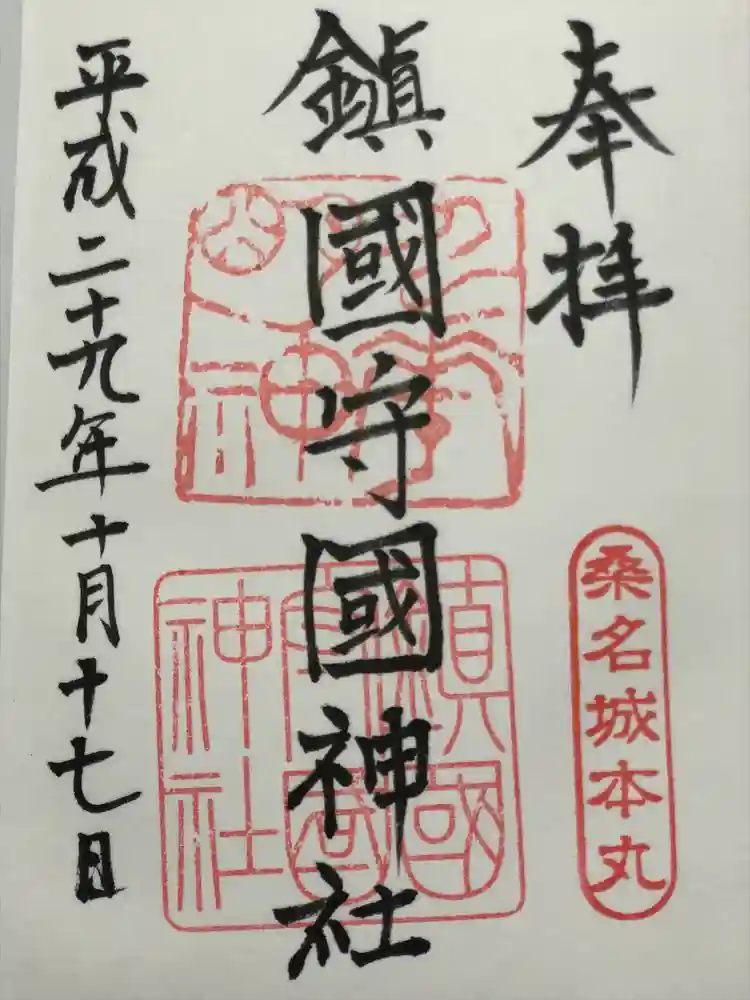 奉拝
桑名城本丸
鎮國守國神社
鎮國
守國
神社
平成二十九年十月十七日